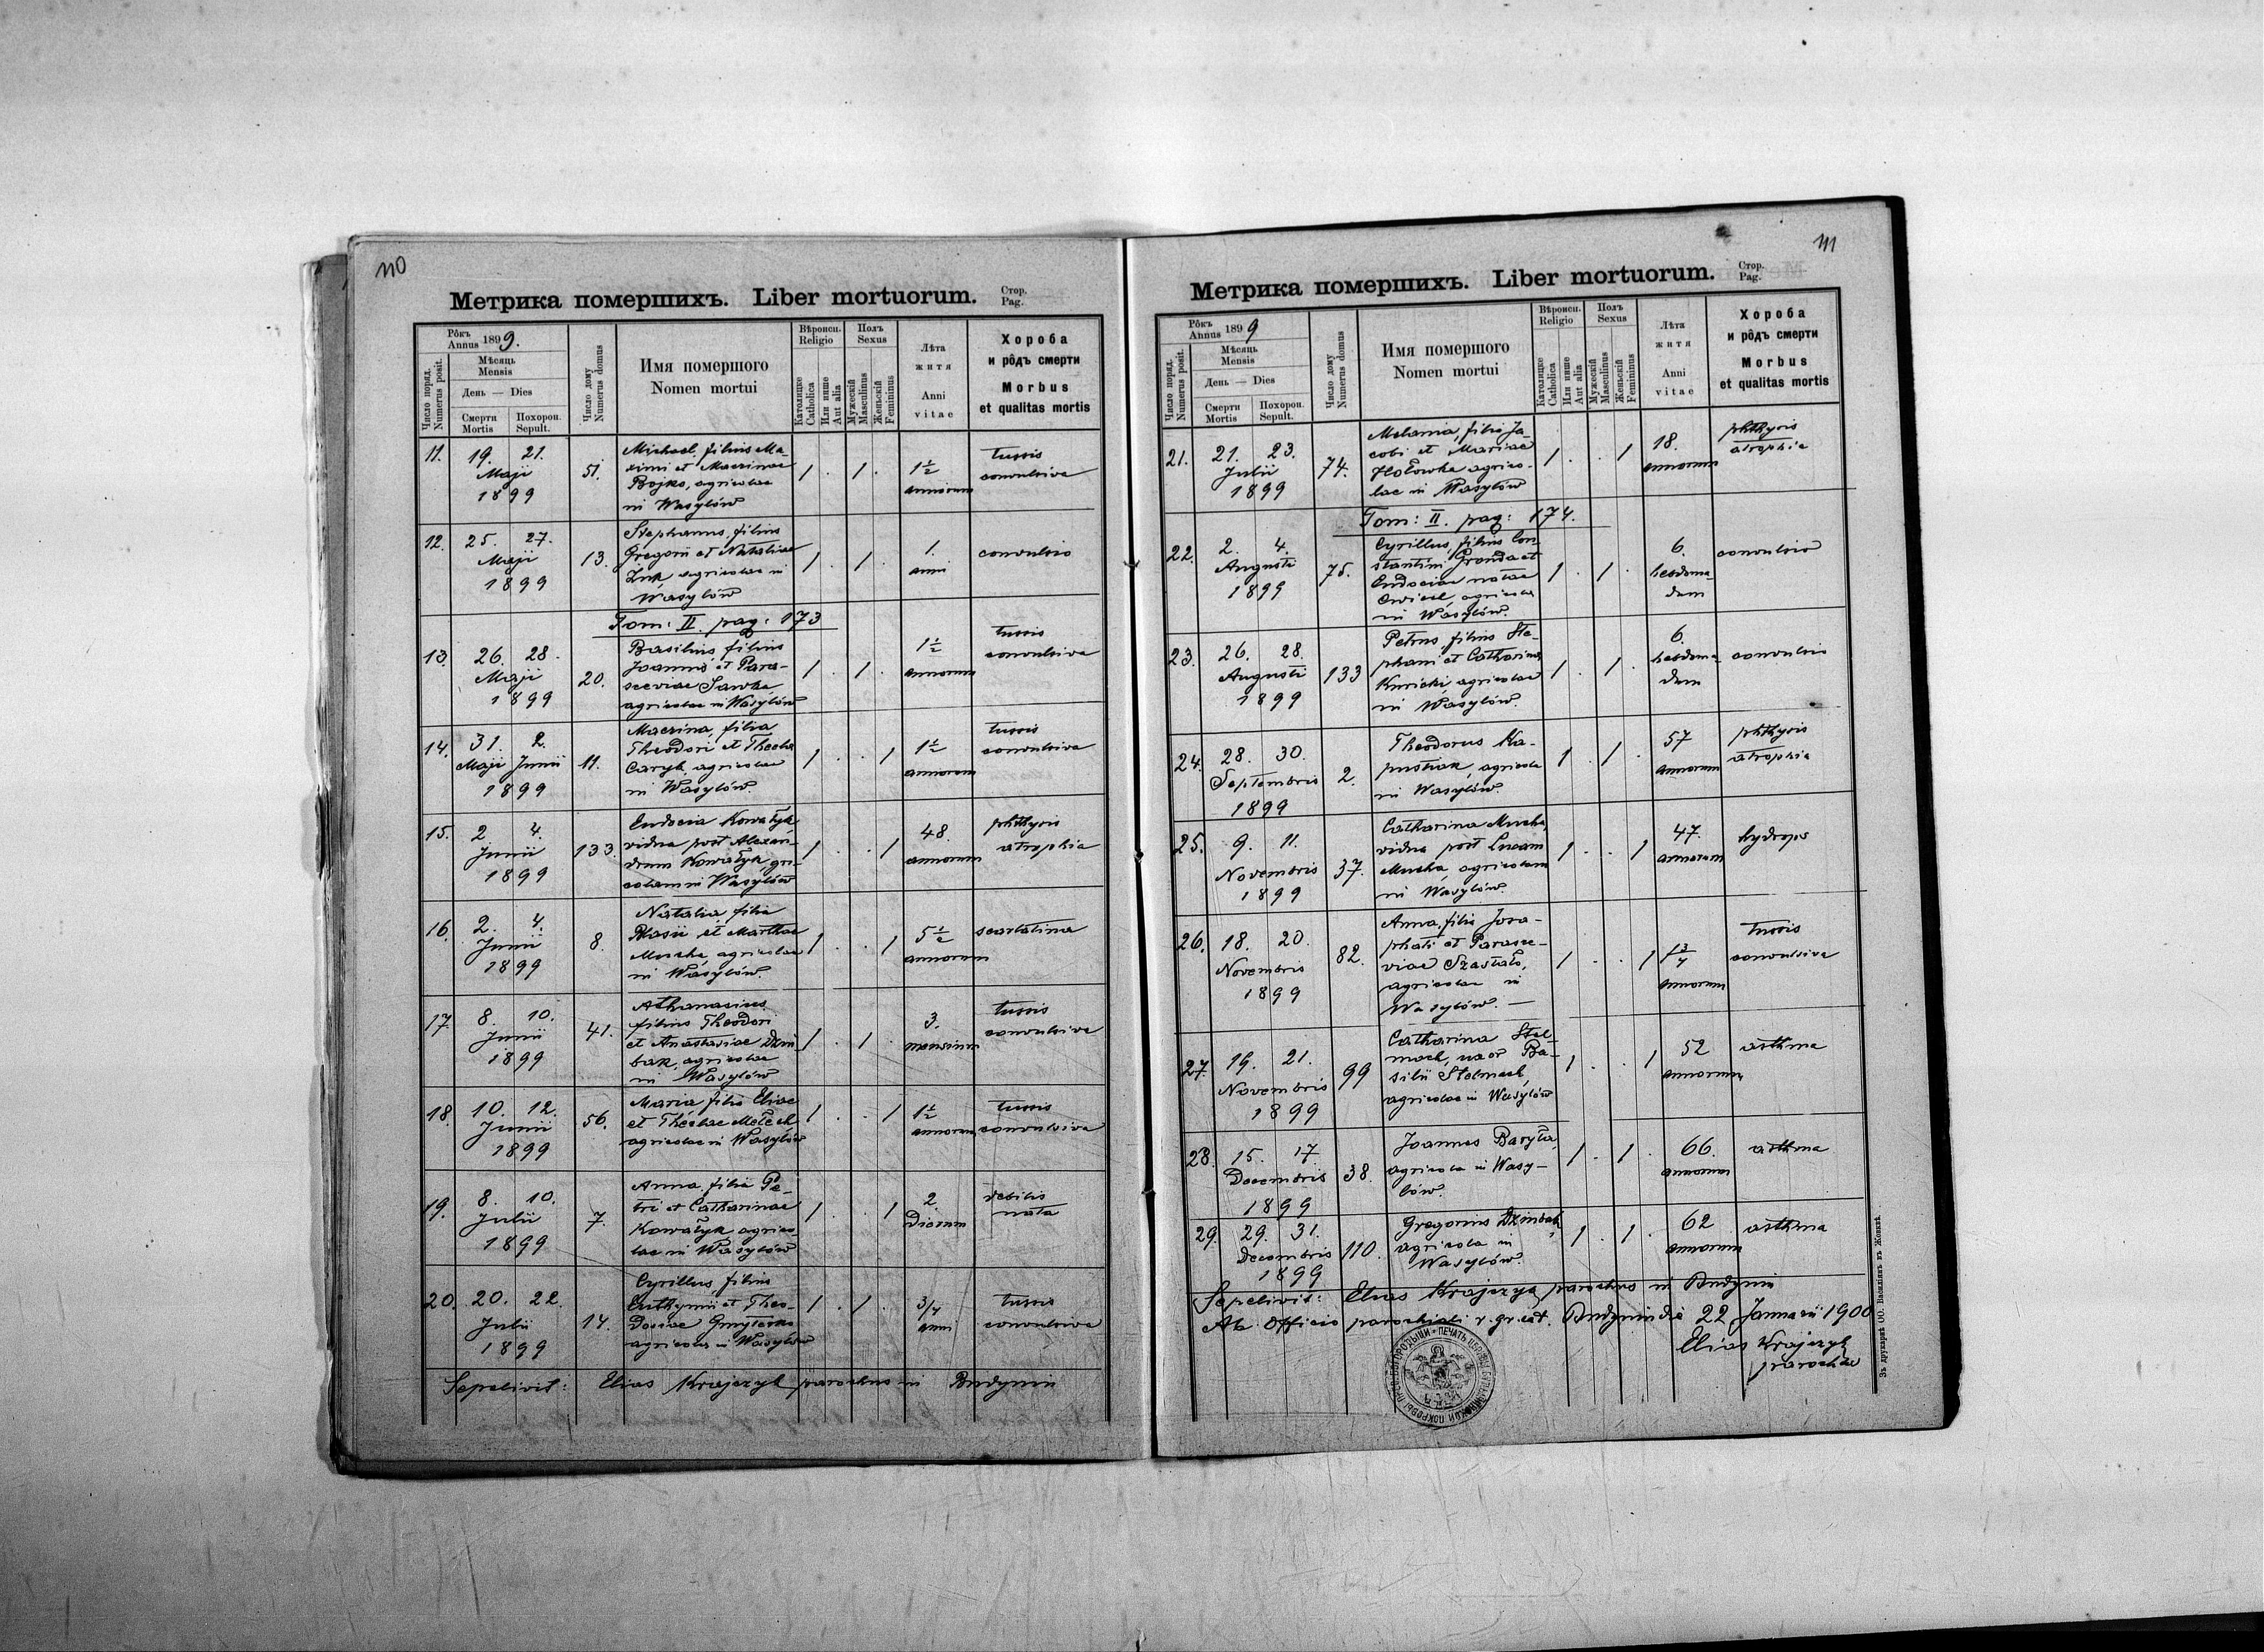 110
Метрика помершихъ. Liber mortuorum. Стор. Pag.
Рôкъ Annus 1899.
Мѣсяць Mensis
День — Dies
Число поряд. Numerus posit.
Смерти Mortis
Похорон. Sepult.
Число дому Numerus domus
Имя помершого
Nomen mortui
Вѣроисп. Religio
Католицке Catholica
Или инше Aut alia
Полъ Sexus
Мужескій Masculinus
Женьскій Femininus
Лѣта житя
Anni vitae
Хороба
и рôдъ смерти
Morbus
et qualitas mortis
11. 19. 21. Maji 1899 51.
Michael, filius Ma-
ximi et Macrinae
Bojko, agricolae
in Wasylów
1 . 1 . 1½ annorum
tussis convulsiva
12. 25. 27. Maji 1899 13.
Stephanus, filius
Gregorii et Nataliae
Żuk agricolae in
Wasylów
1 . 1 . 1. anni
convulsio
Tom: II. pag: 173
13. 26. 28. Maji 1899 20.
Basilius filius
Joannis et Para-
sceviae Sawka
agricolae in Wasylów
1 . 1 . 1½ annorum
tussis convulsiva
14. 31. 2. Maji Junii 1899 11.
Macrina, filia
Theodori et Theclae
Caryk agricolae
in Wasylów.
1 . . 1 1½ annorum
tussis convulsiva
15. 2. 4. Junii 1899 133.
Eudocia Kowałyk
vidua post Alexan-
drum Kowałyk, gri-
colam in Wasylów
1 . . 1 48. annorum
phthysis atrophia
16. 2. 4. Junii 1899 8.
Natalia, filia
Blasii et Marthae
Mucha, agricolae
in Wasylów.
1 . . 1 5½ annorum
scarlatina
17. 8. 10. Junii 1899 41.
Athanasius
filius Theodori
et Anastasiae Dziu
bak, agricolae
in Wasylów
1 . 1 . 3. mensium
tussis convulsiva
18. 10. 12. Junii 1899 56.
Maria filia Eliae
et Theclae Mełech
agricolae in Wasylów
1 . . 1 1½ annorum
tussis convulsiva
19. 8. 10. Julii 1899 7.
Anna, filia Pe-
tri et Catharinae
Kowałyk agrico-
lae in Wasylów
1 . . 1 2. dierum
debilis nata
20. 20. 22. Julii 1899 14.
Cyrillus, filius
Euthymii et Theo-
dosiae
agricolae in Wasylów
1 . 1 . 3/4 anni
tussis convulsiva
Sepelivit: Elias Krajczyk parochus in Budynin
111
Метрика помершихъ. Liber mortuorum. Стор. Pag.
Рôкъ Annus 1899
Мѣсяць Mensis
День — Dies
Число поряд. Numerus posit.
Смерти Mortis
Похорон. Sepult.
Число дому Numerus domus
Имя помершого
Nomen mortui
Вѣроисп. Religio
Католицке Catholica
Или инше Aut alia
Полъ Sexus
Мужескій Masculinus
Женьскій Femininus
Лѣта житя
Anni vitae
Хороба
и рôдъ смерти
Morbus
et qualitas mortis
21. 21. 23. Julii 1899 74.
Melania, filia Ja-
cobi et Mariae
Hołowka agrico-
lae in Wasylów
1 . . 1 18. annorum
phthysis atrophia
Tom: II. pag: 174.
22. 2. 4. Augusti 1899 75.
Cyrillus, filius Con-
stantini Gronda et
Eudociae natae
agricolae
in Wasylów.
1 . 1 . 6. hebdoma-
dum
convulsio
23. 26. 28. Augusti 1899 133
Petrus filius Ste-
phani et Catharinae
Kuricki, agricolae
in Wasylów.
1 . 1 . 6. hebdoma-
dum
convulsio
24. 28. 30. Septembris 1899 2.
Theodorus Ka-
pustiak, agricola
in Wasylów.
1 . 1 . 57 annorum
phthysis atrophia
25. 9. 11. Novembris 1899 37.
Catharina Mucha,
vidua post Lucam
Mucha, agricolam
in Wasylów.
1 . . 1 47. annorum
hydrops
26. 18. 20. Novembris 1899 82.
Anna, filia Josa-
phati et Parasce-
viae Szastało,
agricolae in
Wasylów. —
1 . . 1 1¾ annorum
tussis convulsiva
27. 19. 21. Novembris 1899 99
Catharina Stel-
mach, uxor Ba-
silii Stelmach,
agricolae in Wasylów
1 . . 1 52 annorum
asthma
28. 15. 17. Decembris 1899 38.
Joannes Baryła,
agricola in Wasy-
lów.
1 . 1 . 66. annorum
asthma
29. 29. 31. Decembris 1899 110.
Gregorius Dziubak,
agricola in
Wasylów.
1 . 1 . 62 annorum
asthma
Sepelivit: Elias Krajczyk parochus in Budynin
Ab Officio parochiali r. gr. cat. Budynin die 22 Januarii 1900
Elias Krajczyk
parochus
Зъ друкарнѣ ОО. Василіянъ въ Жовквѣ.